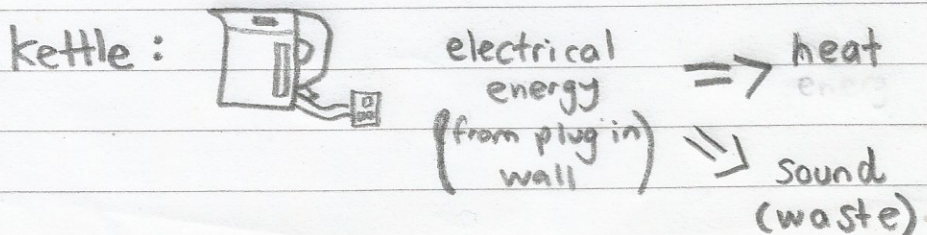 kettle :
electrical
energy
(from plug in
wall)
=> heat
energ
=> sound
(waste)